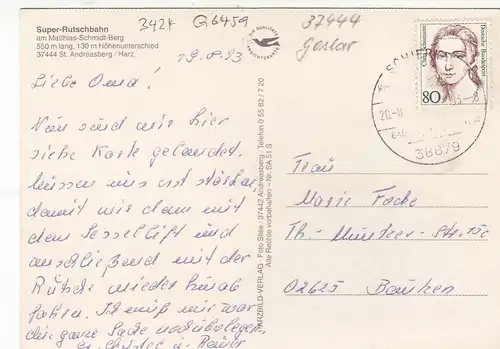 Super-Rutschbahn
am Matthias-Schmidt-Berg
550 m lang, 130 m Höhenunterschied
37444 St. Andreasberg / Harz
3424 G6459
37444
Goslar
19.8.93
Liebe Oma!
Nun sind wir hier
siehe Karte gelandet.
Müssen uns erst stärken
damit wir dann mit
dem Sessellift und
anschließend mit der
Rutsche wieder hinab
fahren. Ich muß mir zwar
die ganze Sache noch überlegen.
Christel u. Rainer
HARZBILD-VERLAG · Foto Stile · 37442 Andreasberg · Telefon 0 55 82 / 7 20
Alle Rechte vorbehalten – Nr. SA 51 S
DIE QUALITÄTS
ANSICHTSKARTE
Deutsche Bundespost
80
SCHIERKE
20.-8.
38879
Frau
Marie Focke
Th.-Müntzer-Str. 15c
02625 Bautzen